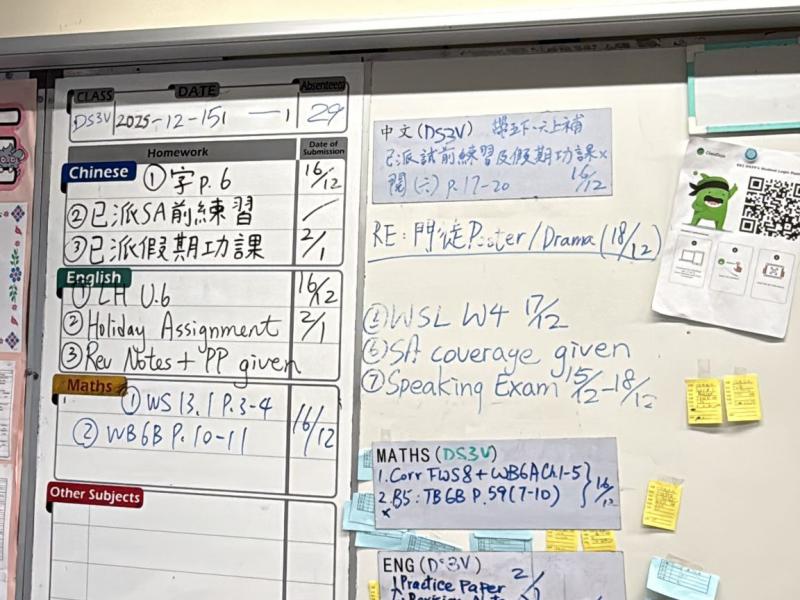 CLASS DATE Absentees
DS3V 2025-12-15 29
Homework Date of Submission
Chinese
① 字 p.6 16/12
② 已派SA前練習
③ 已派假期功課 2/1
English
① LH U.6 16/12
② Holiday Assignment 2/1
③ Rev Notes + PP given
Maths
① WS 13.1 P.3-4
② WB6B P.10-11 16/12
Other Subjects
中文 (DS3V)
已派試前練習及假期功課x
閱(六) p.17-20 16/12
RE: 門徒Poster/Drama (18/12)
WSL W4 17/12
⑥ SA coverage given
⑦ Speaking Exam 15/12-18/12
MATHS (DS3V)
1. Corr FWS8 + WB6A Ch.1-5
2. B5: TB 6B P.59 (7-10) 16/12
x
ENG (DS3V)
Practice Paper 2/1
ClassDojo